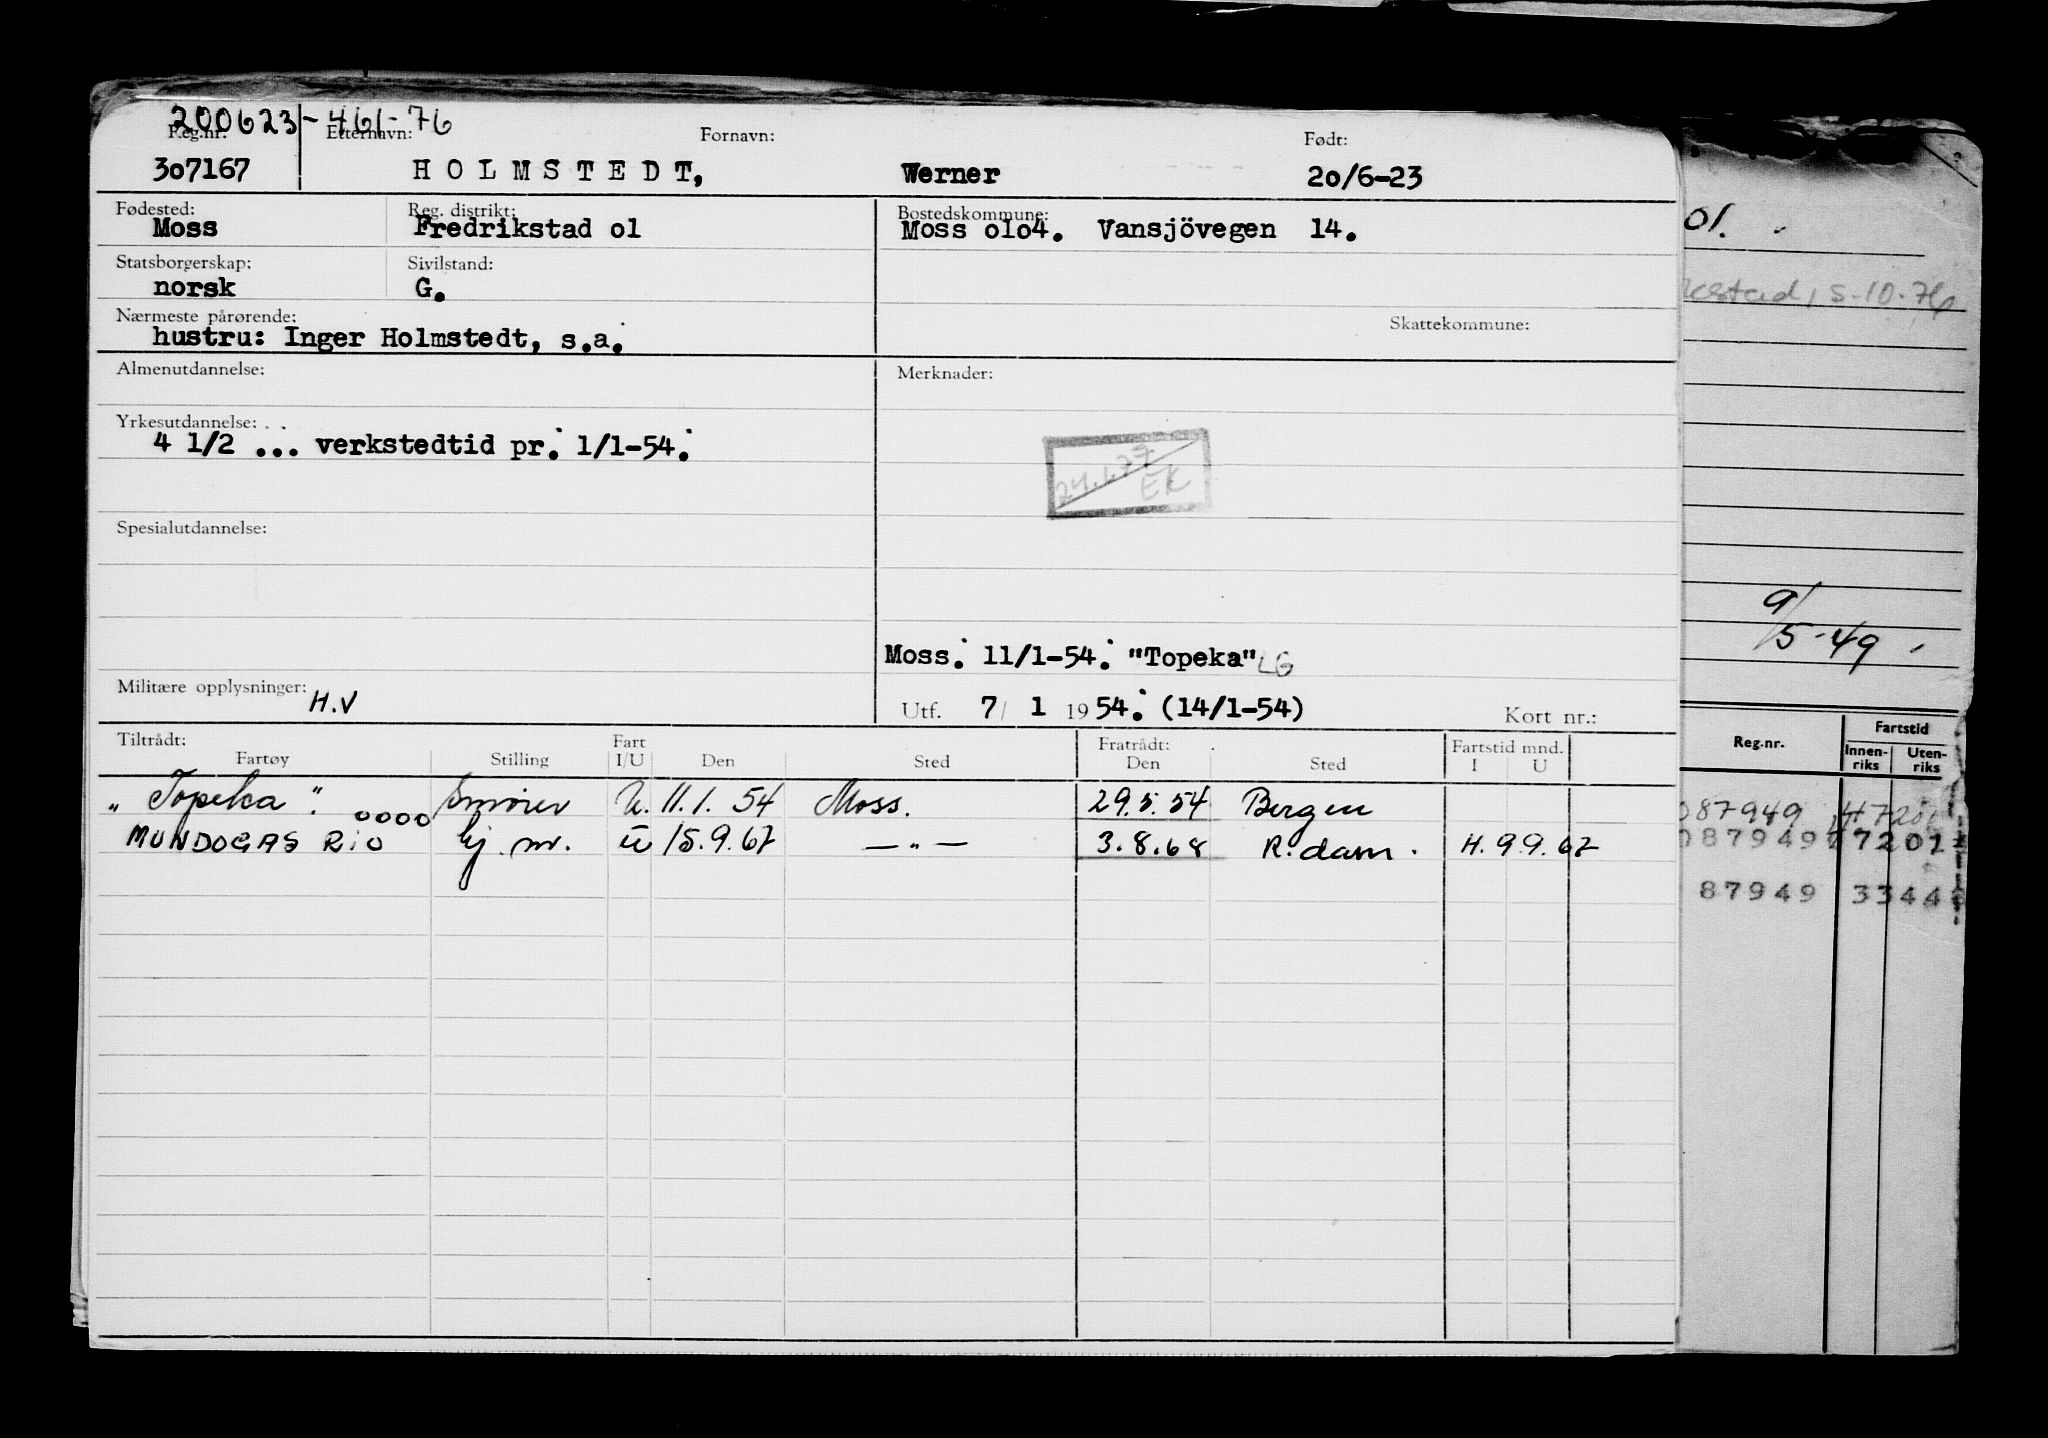 200623-461-76
Reg.nr. Etternavn: Fornavn: Født:
307167 HOLMSTEDT, Werner 20/6-23
Fødested: Reg. distrikt: Bostedskommune:
Moss Fredrikstad o1 Moss o1o4. Vansjövegen 14.
Statsborgerskap: Sivilstand:
norsk G.
Nærmeste pårørende: Skattekommune:
hustru: Inger Holmstedt, s.a.
Almenutdannelse: Merknader:
Yrkesutdannelse:
4 1/2 ... verkstedtid pr. 1/1-54.
24.1.77
EK
Spesialutdannelse:
Moss. 11/1-54. "Topeka" LG
Militære opplysninger: H.V
Utf. 7/ 1 1954. (14/1-54) Kort nr.:
Tiltrådt: Fart Fratrådt: Fartstid mnd.
Fartøy Stilling I/U Den Sted Den Sted I U
"Topeka". oooo Smører U. 11.1.54 Moss. 29.5.54 Bergen
MUNDOGAS RIO hj. m. U 15.9.67 —"— 3.8.68 R.dam. H.9.9.67
01.
5-10-76
9/5-49
Reg.nr. Fartstid
Innenriks Utenriks
087949
0879497 7207
87949 3344